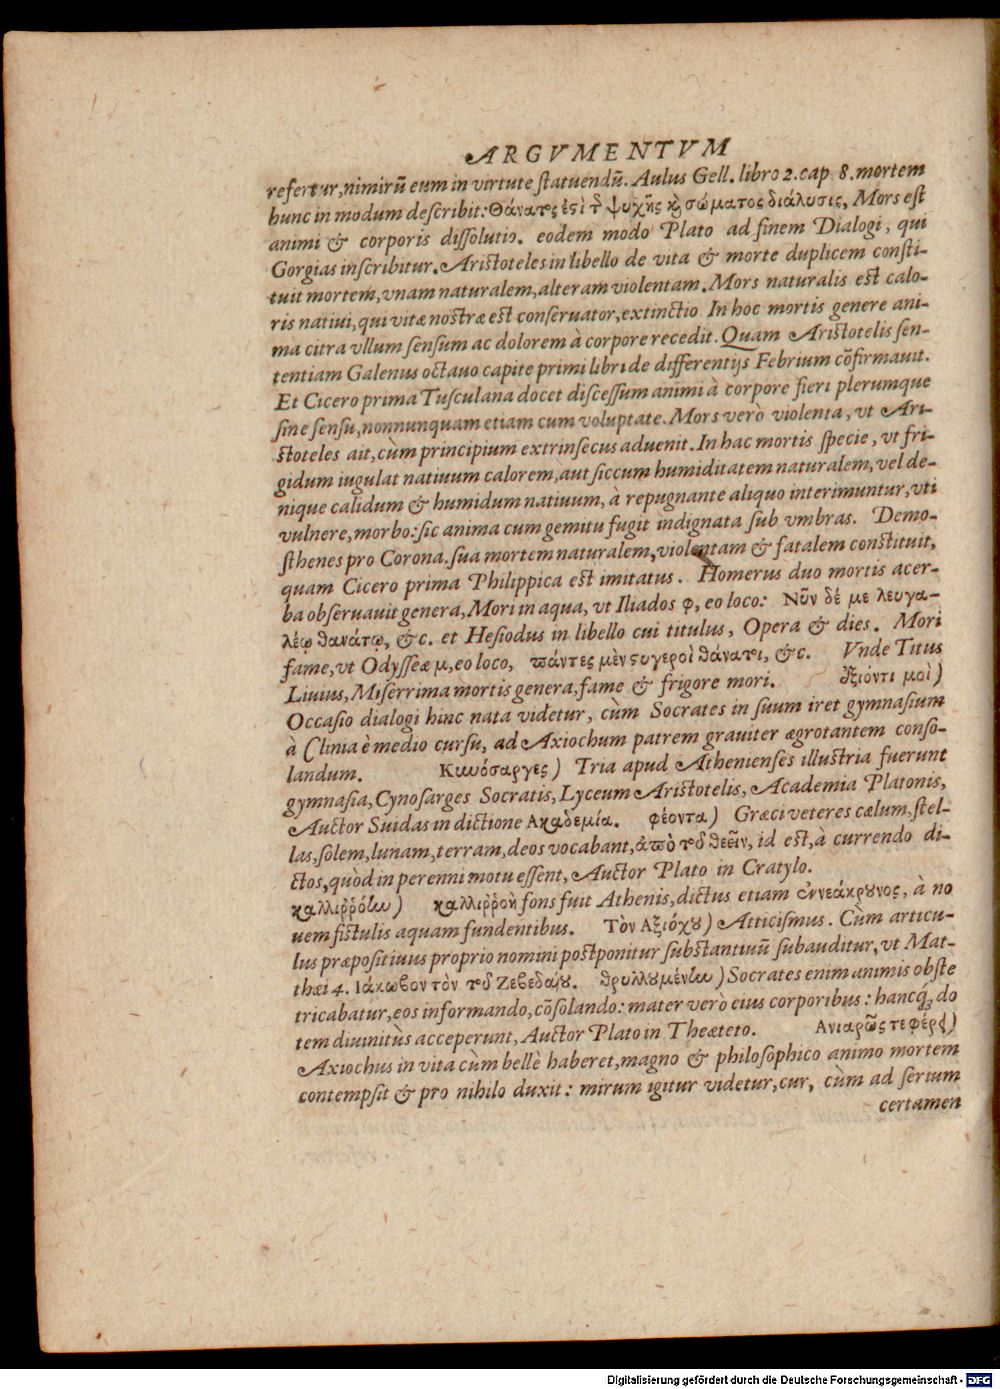 ARGVMENTVM
refertur, nimirũ eum in virtute ſtatuendũ. Aulus Gell. libro 2. cap 8. mortem
hunc in modum deſcribit: Θάνατός ἐστὶ τ͂ ψυχῆς κὶ σώματος διάλυσις, Mors eſt
animi & corporis diſſolutio. eodem modo Plato ad finem Dialogi, qui
Gorgias inſcribitur. Ariſtoteles in libello de vita & morte duplicem conſti-
tuit mortem, vnam naturalem, alteram violentam. Mors naturalis eſt calo-
ris natiui, qui vitæ noſtræ eſt conſeruator, extinctio. In hoc mortis genere ani-
ma citra vllum ſenſum ac dolorem à corpore recedit. Quam Ariſtotelis ſen-
tentiam Galenus octauo capite primi libri de differentijs Febrium cõfirmauit.
Et Cicero prima Tuſculana docet diſceſſum animi à corpore fieri plerumque
ſine ſenſu, nonnunquam etiam cum voluptate. Mors verò violenta, vt Ari-
ſtoteles ait, cùm principium extrinſecus aduenit. In hac mortis ſpecie, vt fri-
gidum iugulat natiuum calorem, aut ſiccum humiditatem naturalem, vel de-
nique calidum & humidum natiuum, à repugnante aliquo interimuntur, vti
vulnere, morbo: ſic anima cum gemitu fugit indignata ſub vmbras. Demo-
ſthenes pro Corona. ſua mortem naturalem, violentam & fatalem conſtituit,
quam Cicero prima Philippica eſt imitatus. Homerus duo mortis acer-
ba obſeruauit genera, Mori in aqua, vt Iliados φ, eo loco: Νῦν δέ με λευγα-
λέῳ θανάτῳ, &c. et Heſiodus in libello cui titulus, Opera & dies. Mori
fame, vt Odyſſeæ μ, eo loco, πάντες μὲν στυγεροὶ θάνατοι, &c. Vnde Titus
Liuius, Miſerrima mortis genera, fame & frigore mori. Ἐξιόντι μοὶ)
Occaſio dialogi hinc nata videtur, cùm Socrates in ſuum iret gymnaſium
à Clinia è medio curſu, ad Axiochum patrem grauiter ægrotantem conſo-
landum. Κυνόσαργες) Tria apud Athenienſes illuſtria fuerunt
gymnaſia, Cynoſarges Socratis, Lyceum Ariſtotelis, Academia Platonis,
Auctor Suidas in dictione Ακαδεμία. φέοντα) Græci veteres cælum, ſtel-
las, ſolem, lunam, terram, deos vocabant, ἀπὸ τοῦ θεεῖν, id eſt, à currendo di-
ctos, quòd in perenni motu eſſent, Auctor Plato in Cratylo.
καλλιῤῥόην) καλλιῤῥοὴ fons fuit Athenis, dictus etiam ἐννεάκρουνος, à no
uem fiſtulis aquam fundentibus. Τὸν Αξιόχου) Atticiſmus. Cùm articu-
lus præpoſitiuus proprio nomini poſtponitur ſubſtantiuũ ſubauditur, vt Mat-
thæi 4. Ιάκωβον τὸν τοῦ Ζεβεδαίου. θρυλλουμένην) Socrates enim animis obſte
tricabatur, eos informando, cõſolando: mater verò eius corporibus: hancq́; do
tem diuinitùs acceperunt, Auctor Plato in Theæteto. Ανιαρῶς τε φέρει)
Axiochus in vita cùm bellè haberet, magno & philoſophico animo mortem
contempſit & pro nihilo duxit: mirum igitur videtur, cur, cùm ad ſerium
certamen
Digitalisierung gefördert durch die Deutsche Forschungsgemeinschaft - DFG